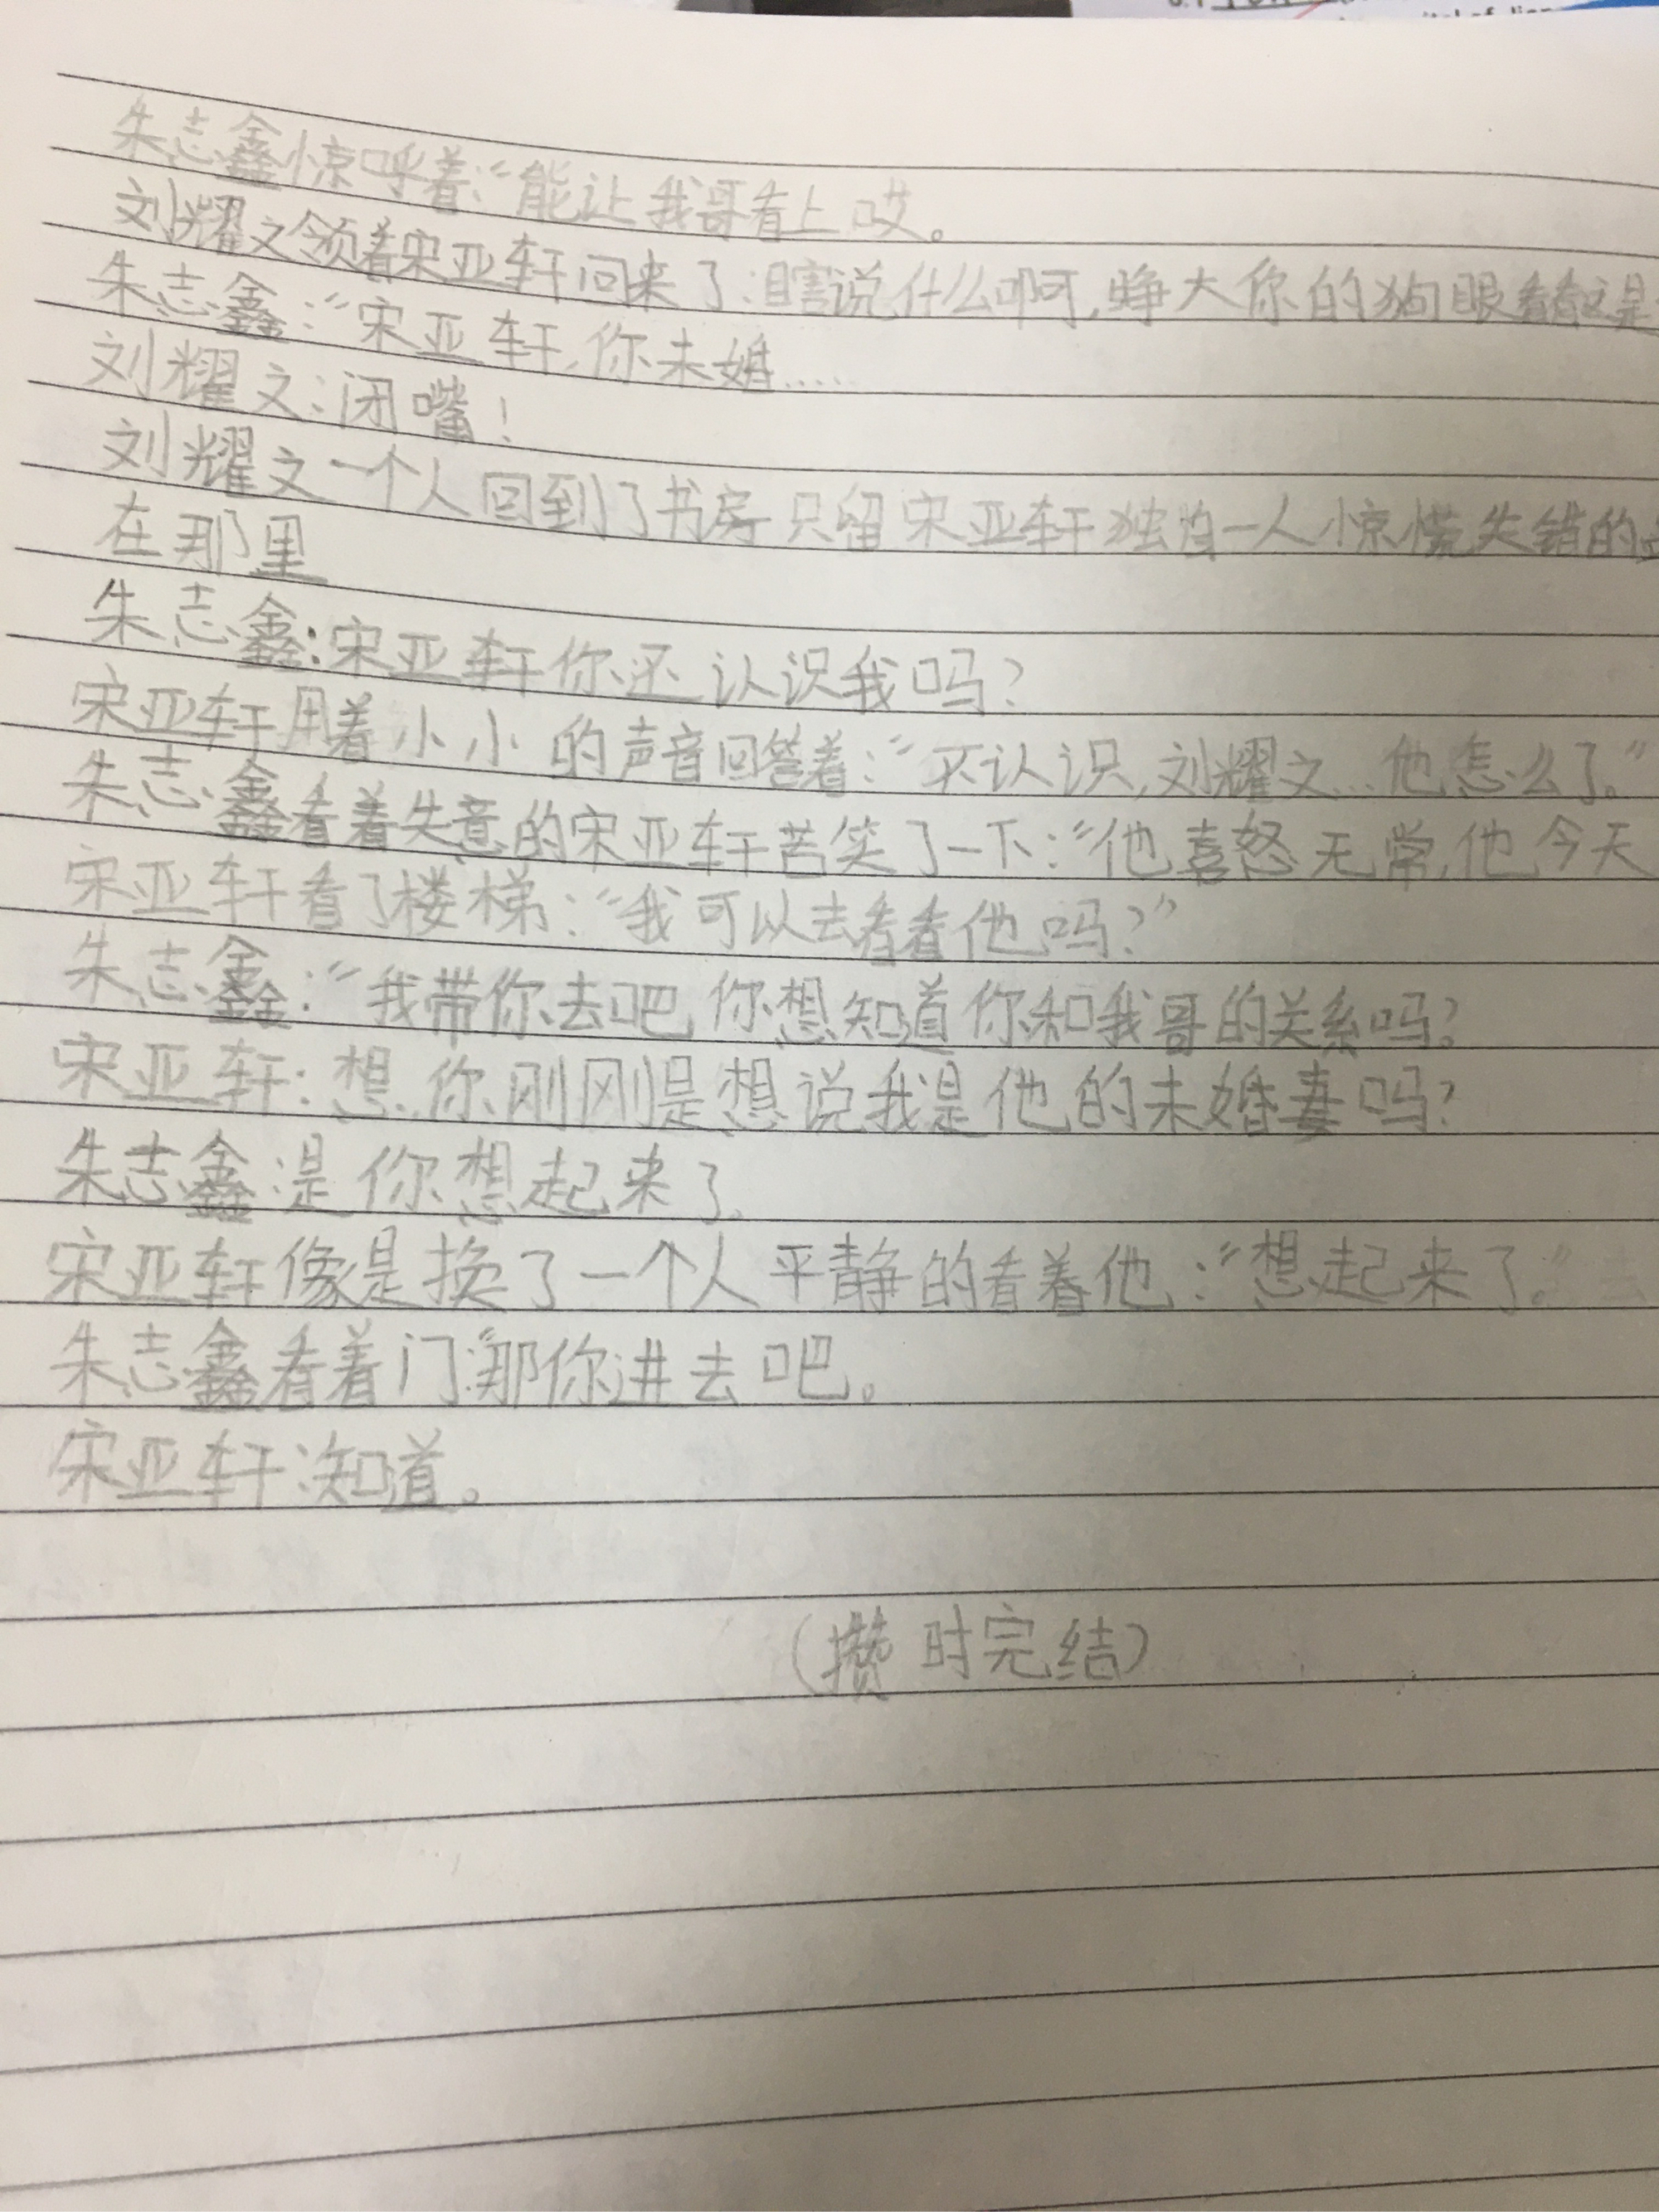 朱志鑫惊呼着:“能让我哥看上哎。
刘耀文领着宋亚轩回来了:瞎说什么啊,睁大你的狗眼看看这是
朱志鑫:“宋亚轩,你未婚.....
刘耀文:闭嘴!
刘耀文一个人回到了书房只留宋亚轩独自一人惊慌失错的
在那里
朱志鑫:宋亚轩你还认识我吗?
宋亚轩用着小小的声音回答着:“不认识,刘耀文...他怎么了。”
朱志鑫看着失意的宋亚轩苦笑了一下:“他喜怒无常,他今天
宋亚轩看了楼梯:“我可以去看看他吗?”
朱志鑫:“我带你去吧,你想知道你和我哥的关系吗?
宋亚轩:想,你刚刚是想说我是他的未婚妻吗?
朱志鑫:是你想起来了。
宋亚轩像是换了一个人平静的看着他:“想起来了。”
朱志鑫看着门:“那你进去吧。
宋亚轩:知道。
(攒时完结)